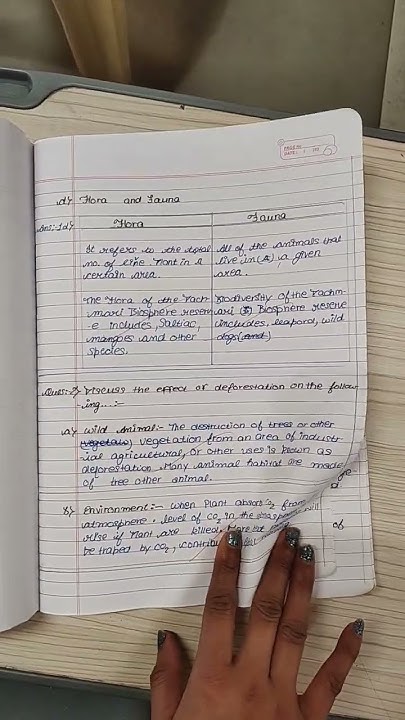 PAGE NO.
DATE:
d) Flora and Fauna
Ans:-1d)
Flora
Fauna
It refers to the total no. of live Plant in a certain area.
All of the animals that live in a given area.
The Flora of the Pachmari Biosphere reserve includes, Saltiac, mangoes and other species.
Biodiversity of the Pachmari Biosphere reserve includes, leapord, wild dogs
Ques:-2) Discuss the effect of deforestation on the following...:-
a) Wild Animal:- The destruction of trees or other
vegetation from an area of industr-
ial agricultural, or other uses is known as
deforestation. Many animal habitat are made
of tree other animal.
ge
B) Environment:- When Plant absorb from
atmosphere. level of CO2 in the will
rise if Plant are killed. More
of
be traped by CO2,